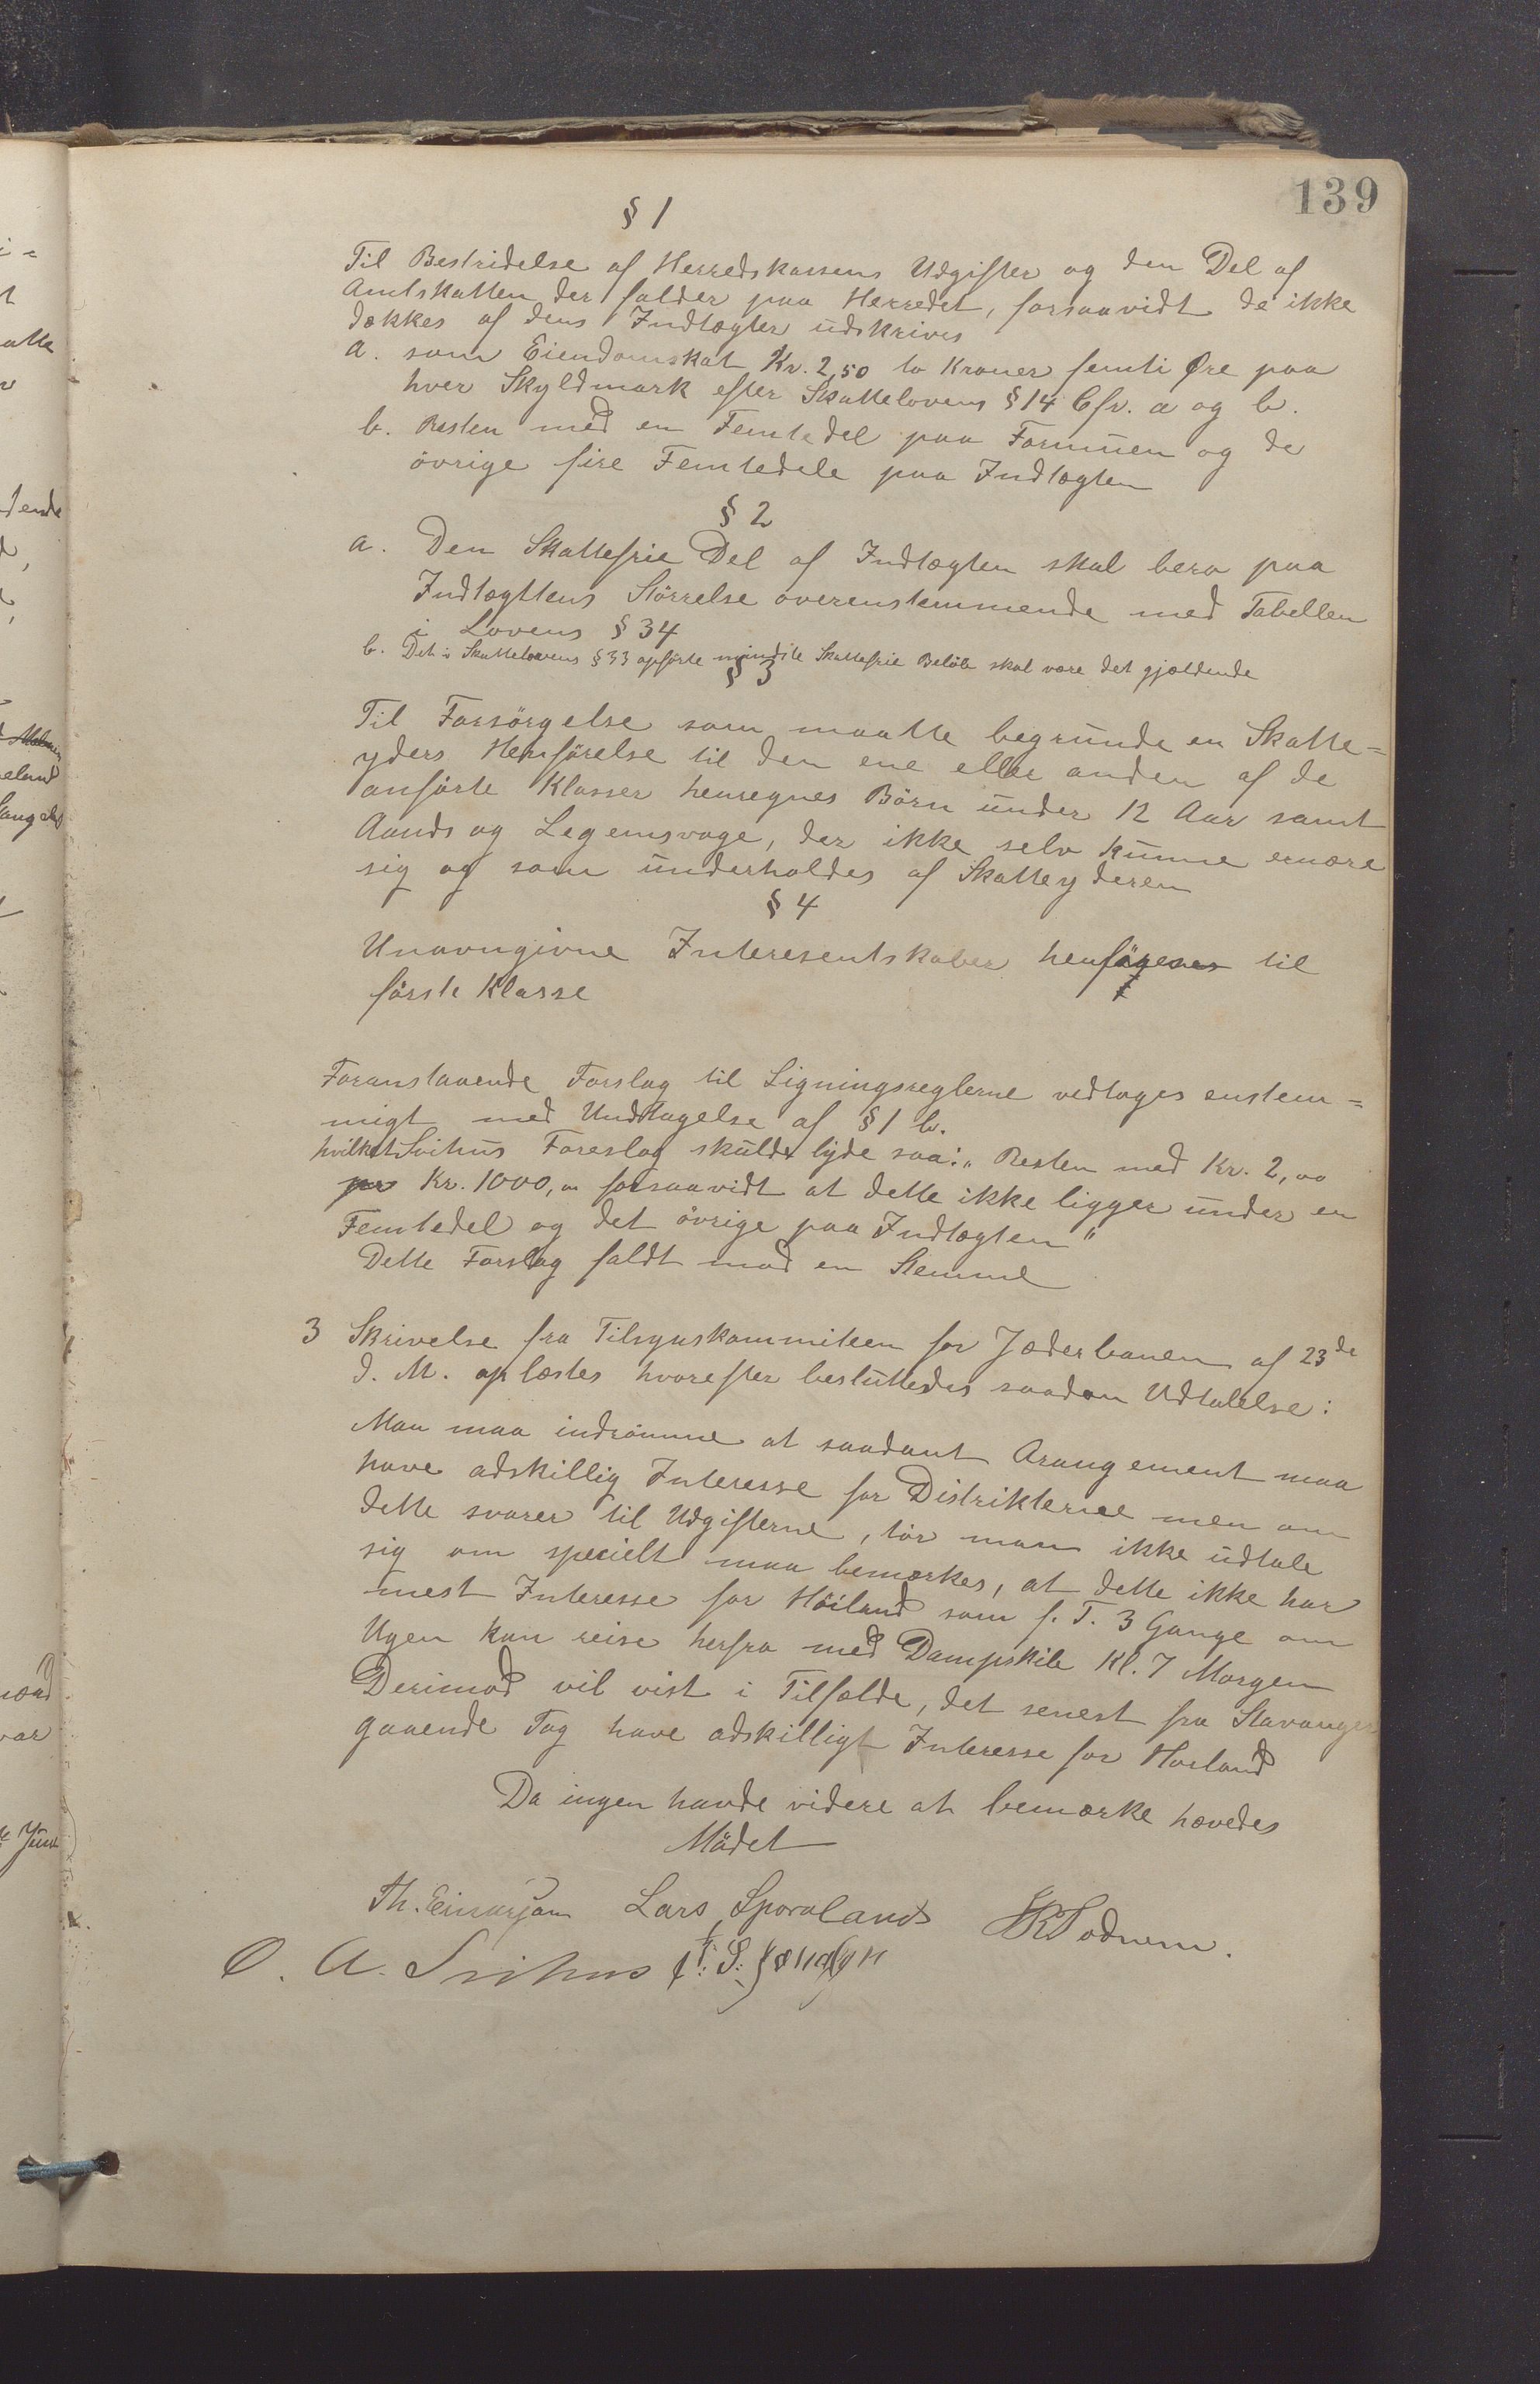 139
§ 1
Til Bestridelse af Herredskassens Udgifter og den Del af
Amtskatten der falder paa Herredet, forsaavidt de ikke
dækkes af dens Indtægter udskrives
a. som Eiendomskat Kr. 2,50 to Kroner femti Øre paa
hver Skyldmark efter Skattelovens § 14 Cfr. a og b.
b. Resten med en Femtedel paa Formuen og de
övrige fire Femtedele paa Indtægten
§ 2
a. Den Skattefrie Del af Indtægten skal bero paa
Indtægttens Störrelse overenstemmende med Tabellen
i Lovens § 34
b. Det i Skattelovens § 33 opförte mindste Skattefrie Belöb skal være det gjældende
§ 3
Til Forsörgelse som maatte begrunde en Skatte=
yders Henförelse til den ene eller anden af de
anförte Klasser henregnes Börn under 12 Aar samt
Aands og Legemsvage, der ikke selv kunne ernære
sig og som underholdes af Skatteyderen
§ 4
Unavngivne Interesentskaber henföres til
förste Klasse
Foranstaaende Forslag til Ligningsreglerne vedtages enstem=
migt med Undtagelse af § 1 b.
hvilket Svihus Foreslog skulde lyde saa: „Resten med Kr. 2,00
pr Kr. 1000,00 forsaavidt at dette ikke ligger under en
Femtedel og det övrige paa Indtægten"
Dette Forslag faldt mod en Stemme
3 Skrivelse fra Tilsynskommiteen for Jæderbanen af 23de
d. M. oplæstes hvorefter besluttedes saadan Udtalelse:
Man maa indrömme at saadant Arangement maa
have adskillig Interesse for Distrikterne men om
dette svarer til Udgifterne, tör man ikke udtale
sig om specielt maa bemærkes, at dette ikke har
mest Interesse for Höiland som f. T. 3 Gange om
Ugen kan reise herfra med Dampskib Kl. 7 Morgen
Derimod vil vist i Tilfælde, det senest fra Stavanger
gaaende Tog have adskilligt Interesse for Hoiland
Da ingen havde videre at bemærke hævedes
Mödet
Th. Einarsen Lars Sporaland
O. A. Svihus